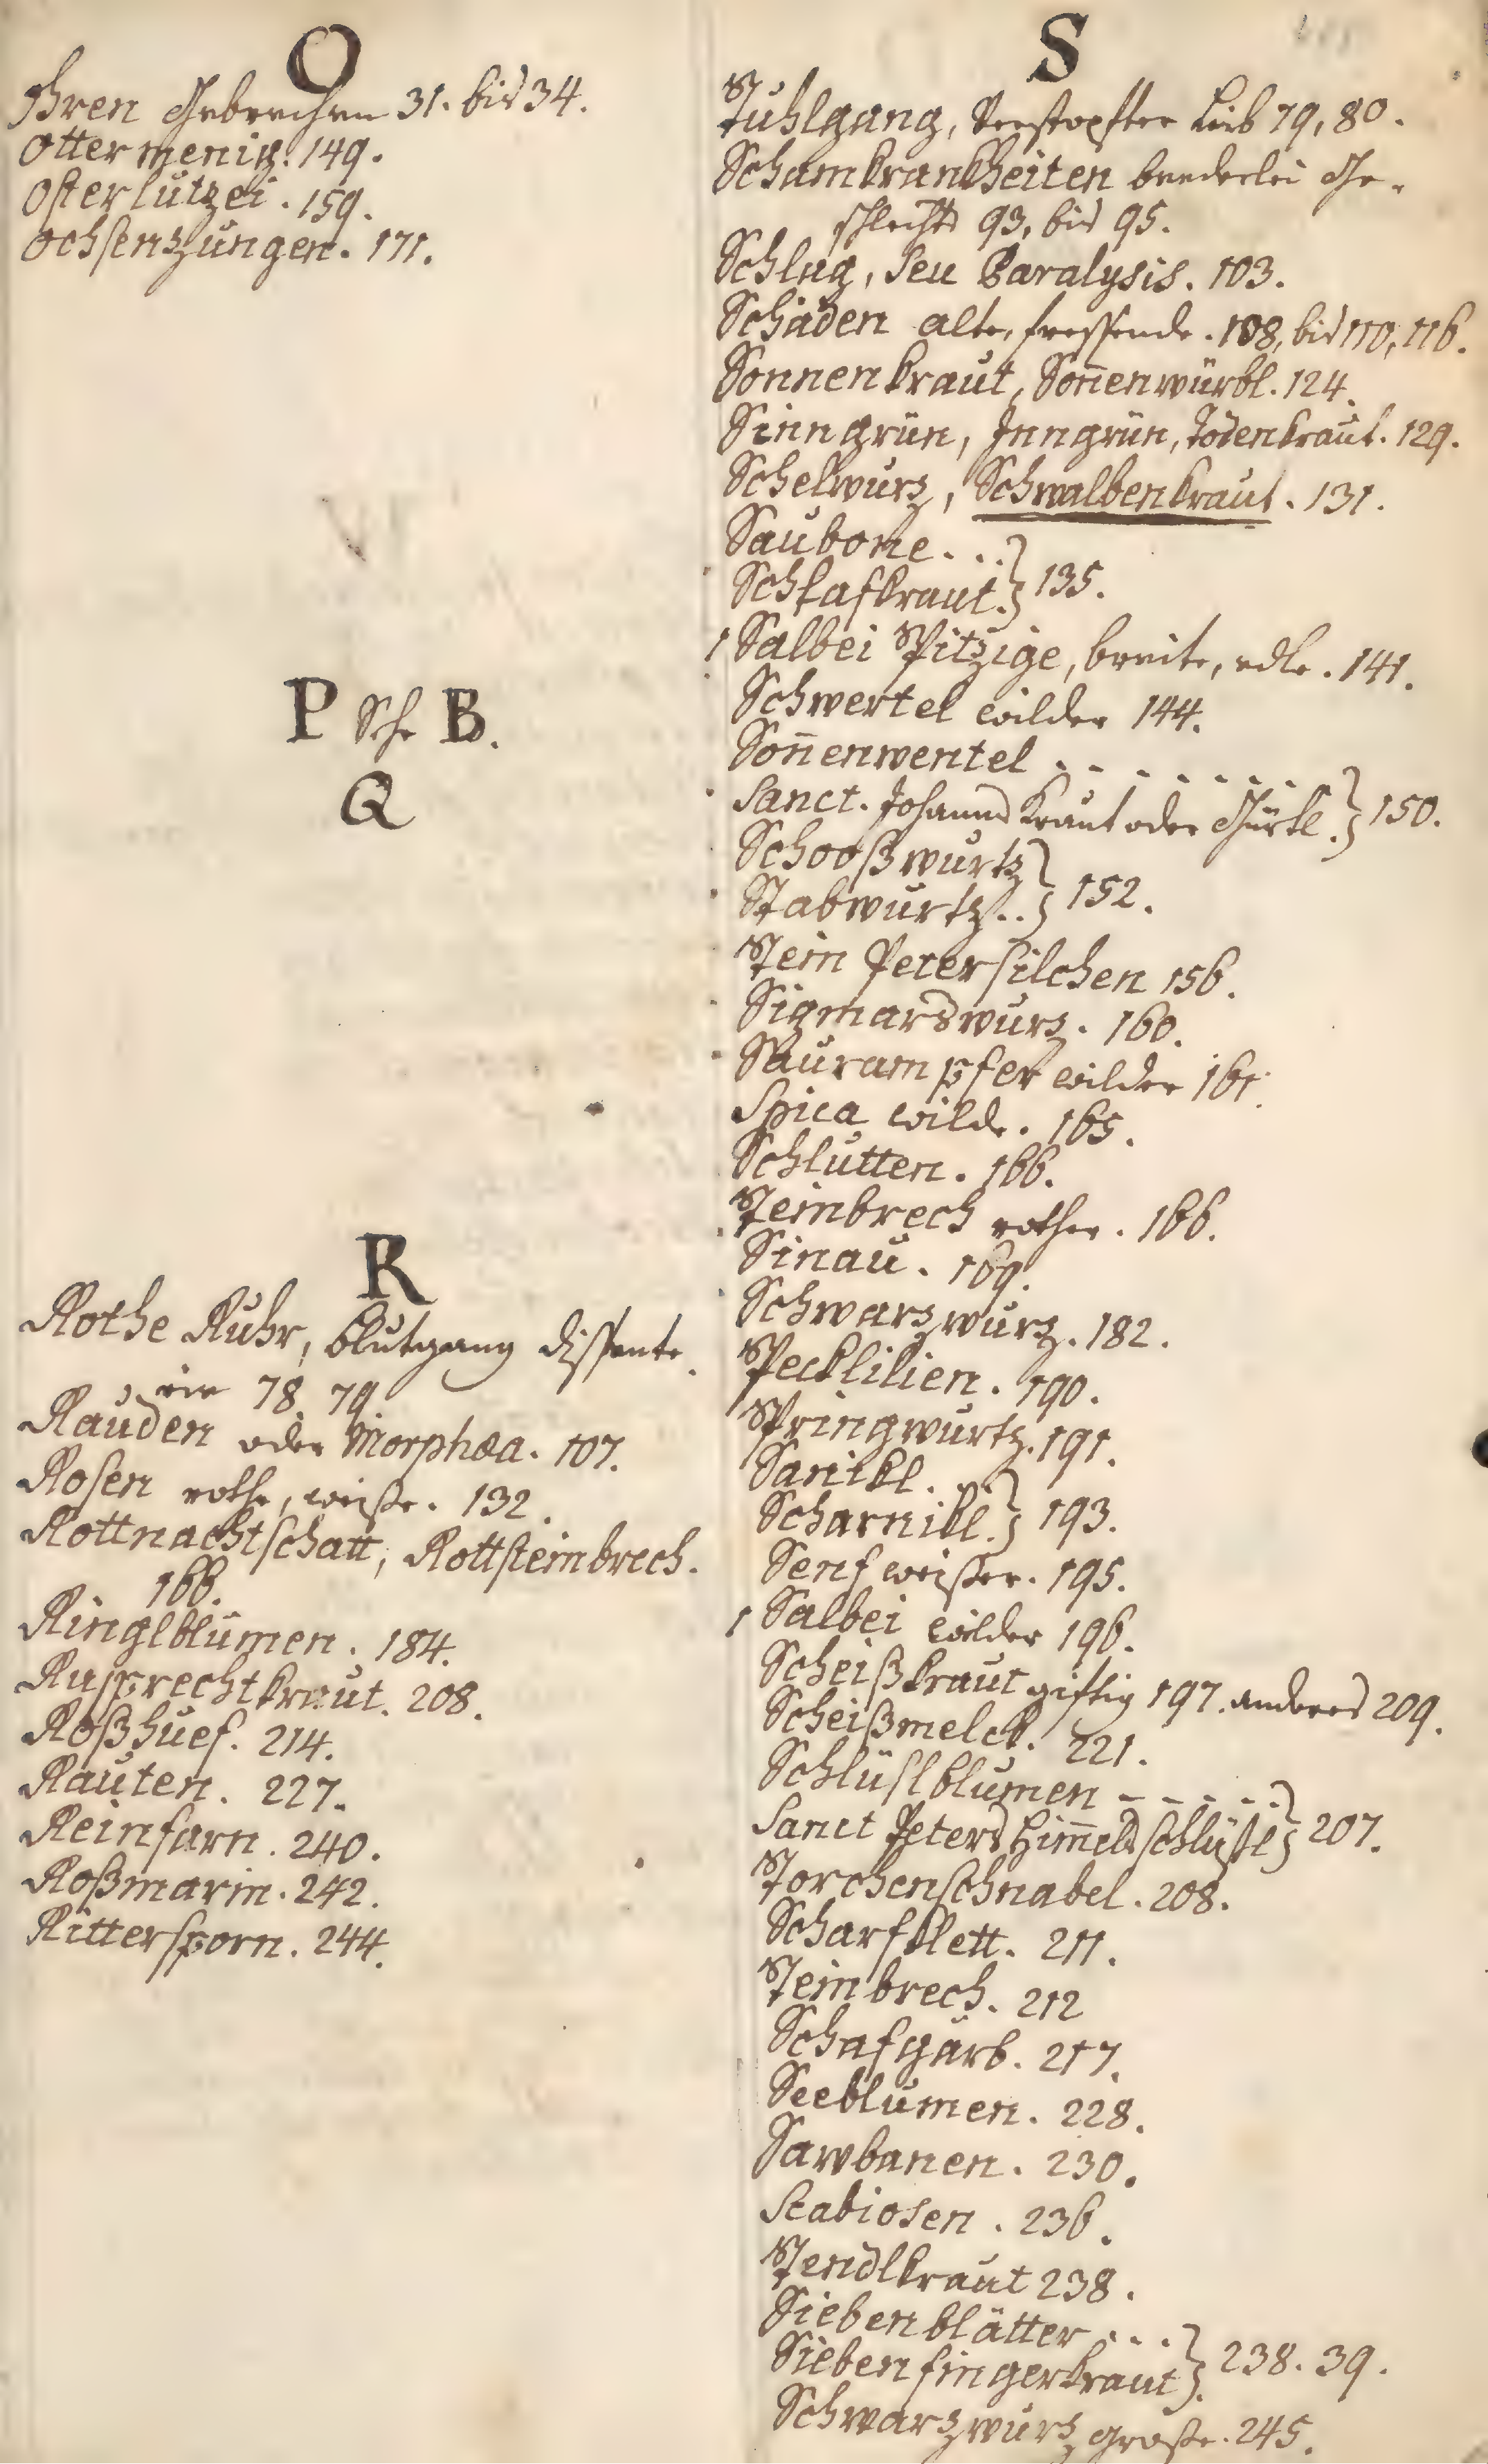 O
Ohren Gebrechen 31. bis 34.
Ottermenig. 149.
Osterlutzei. 159.
Ochsenzungen. 171.
P Sih B.
Q
R
Rothe Ruhr, Blutgang dissente
rie 78. 79
Rauden oder Morphœa. 107.
Rosen rothe, weiße. 132.
Rottnachtschatt, Rottsteinbrech.
166.
Ringlblumen. 184.
Rupprechtkraut. 208.
Roßhuef. 214.
Rauten. 227.
Reinfarn. 240.
Roßmarin. 242.
Rittersporn. 244.
S
Stuhlgang, Verstopfter Leib 79, 80.
Schamkrankheiten beederlei Ge-
schlechts 93, bis 95.
Schlag, seu Paralysis. 103.
Schäden alte, fressende. 108, bis 110, 116.
Sonnenkraut, Son̄enwürbl. 124.
Sinngrün, Inngrün, Todenkraut. 129.
Schelwurz, Schwalbenkraut. 131.
Saubone...
Schlafkraut. } 135.
Salbei Spitzige, breite, edle. 141.
Schwertel wilder 144.
Son̄enwentel - - - - - - -
Sanct. Johanns Kraut oder Gürtl. } 150.
Schooßwurtz
Stabwurtz.. } 152.
Stein Petersilchen 156.
Sigmarswurz. 160.
Saurampfer wilder 161.
Spica wilde. 165.
Schlutten. 166.
Steinbrech rother. 166.
Sinau. 169.
Schwarzwurz. 182.
Specklilien. 190.
Springwurtz. 191.
Sanikl. ..
Scharnikl. } 193.
Senf weisser. 195.
Salbei wilder 196.
Scheißkraut giftig 197. anderes 209.
Scheißmelck. 221.
Schlüslblumen - - - - -
Sanct Peters Him̄elsschlüßl } 207.
Storchenschnabel. 208.
Scharfklett. 211.
Steinbrech. 212
Schafgarb. 217.
Seeblumen. 228.
Sawbanen. 230.
Scabiosen. 236.
Stendlkraut 238.
Siebenblätter...
Siebenfingerkraut } 238. 39.
Schwarzwurz große. 245.